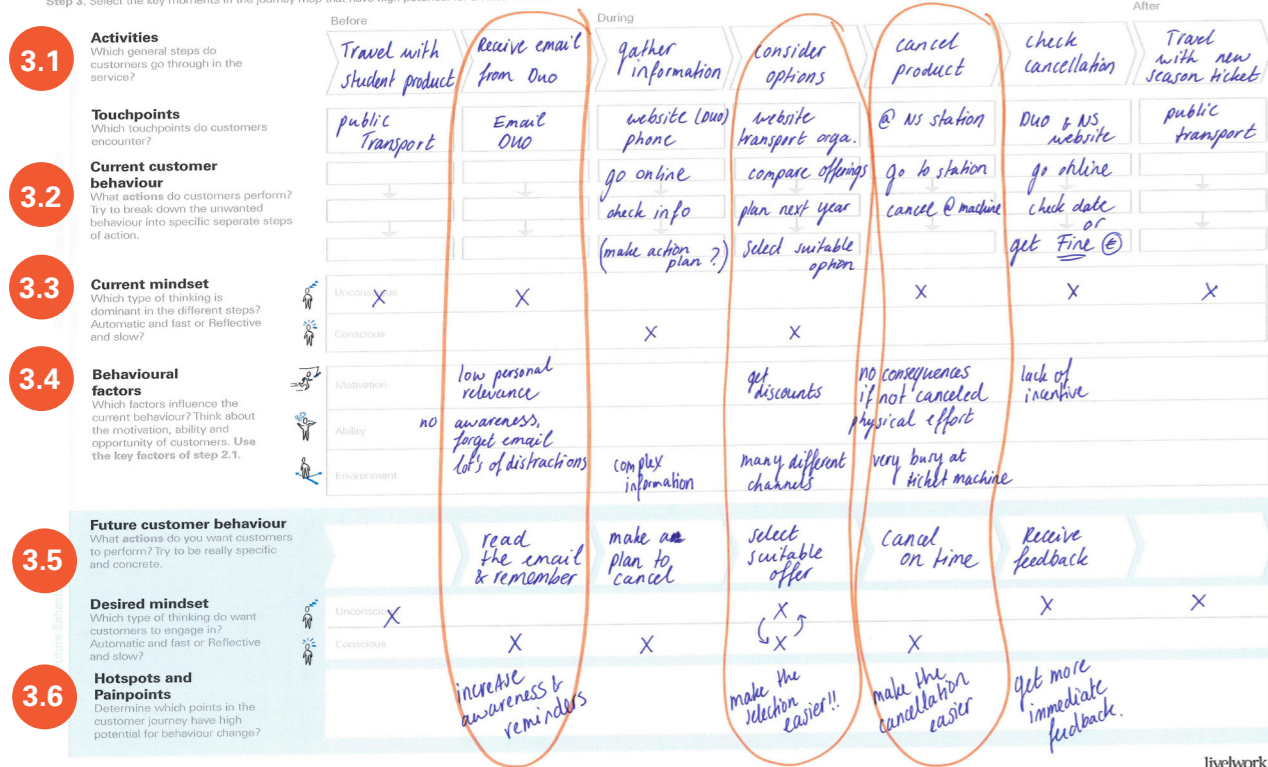 Step 3. Select the key moments in the journey map that have high potential for
Before
During
After
3.1
Activities
Which general steps do
customers go through in the
service?
Travel with
student product
Receive email
from Duo
gather
information
consider
options
cancel
product
check
cancellation
Travel
with new
season ticket
Touchpoints
Which touchpoints do customers
encounter?
public
Transport
Email
DUO
website (DUO)
phone
website
transport orga.
@ NS station
DUO & NS
website
public
transport
3.2
Current customer
behaviour
What actions do customers perform?
Try to break down the unwanted
behaviour into specific seperate steps
of action.
go online
check info
(make action
plan ?)
compare offerings
plan next year
select suitable
option
go to station
cancel @ machine
go online
check date
or
get Fine €
3.3
Current mindset
Which type of thinking is
dominant in the different steps?
Automatic and fast or Reflective
and slow?
Unconscious
X
X
X
X
X
Conscious
X
X
3.4
Behavioural
factors
Which factors influence the
current behaviour? Think about
the motivation, ability and
opportunity of customers. Use
the key factors of step 2.1.
Motivation
low personal
relevance
get
discounts
no consequences
if not canceled
lack of
incentive
Ability
no awareness,
forget email
physical effort
Environment
lot's of distractions
complex
information
many different
channels
very busy at
ticket machine
3.5
Future customer behaviour
What actions do you want customers
to perform? Try to be really specific
and concrete.
read
the email
& remember
make a
plan to
cancel
select
suitable
offer
cancel
on time
Receive
feedback
Desired mindset
Which type of thinking do want
customers to engage in?
Automatic and fast or Reflective
and slow?
Unconscious
X
X
X
X
Conscious
X
X
X
X
3.6
Hotspots and
Painpoints
Determine which points in the
customer journey have high
potential for behaviour change?
increase
awareness &
reminders
make the
selection
easier!!
make the
cancellation
easier
get more
immediate
feedback.
livelwork